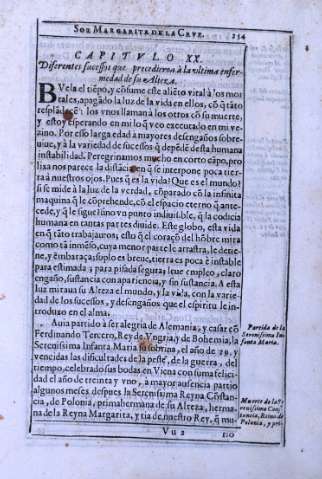 SOR MARGARITA DE LA CRVZ. 254
CAPITVLO XX.
Diferentes sucessos que precedieron à la vltima enfer-
medad de su Alteza.
BVela el tiẽpo, y cõsume este aliẽto vital à los mor
tales, apagãdo la luz de la vida en ellos, cõ q̃ tãto
resplãdecẽ: los vnos llaman à los otros cõ su muerte,
y estoy esperando en mi lo q̃ veo executado en mi ve-
zino. Por esso larga edad à mayores desengaños sobre-
uiue, y à la variedad de sucessos q̃ depẽde desta humana
instabilidad. Peregrinamos mucho en corto cãpo, pro
lixa nos parece la distãcia en q̃ se interpone poca tier-
ra à nuestros ojos. Pues q̃ es la vida? Que es el mundo?
si se mide à la luz de la verdad, cõparado cõ la infinita
maquina q̃ le cõprehende, cõ el espacio eterno q̃ ante-
cede, y q̃ le sigue? sino vn punto indiuisible, q̃ la codicia
humana en tantas partes diuide. Este globo, esta vida
en q̃ tãto trabajamos; esto q̃ el coraçõ del hõbre mira
como tã inmẽso, cuya menor parte le arrastra, le detie-
ne, y embaraça; suplo es breue, tierra es poca è instable
para estimada, y para pisada segura; leue empleo, claro
engaño, sustancia con apariencia, y sin sustancia. A esta
luz miraua su Alteza el mundo, y la vida, con la varie-
dad de los sucessos, y desengaños que el espiritu le in-
troduzo en el alma.
Auia partido à ser alegria de Alemania, y casar cõ
Ferdinando Tercero, Rey de Vngria, y de Bohemia, la
Serenissima Infanta Maria su sobrina, el año de 29, y
vencidas las dificultades de la peste, de la guerra, del
tiempo, celebrado sus bodas en Viena con suma felici-
dad el año de treinta y vno, a mayor ausencia partio
algunos meses despues la Serenissima Reyna Cõstan-
cia, de Polonia, prima hermana de su Alteza, herma-
na de la Reyna Margarita, y tia de nuestro Rey, q̃ mu-
Vu 2
rio
Partida de la
Serenissima In-
fanta Maria.
Muerte de la S-
renissima Con-
stancia, Reina de
Polonia, y pri-